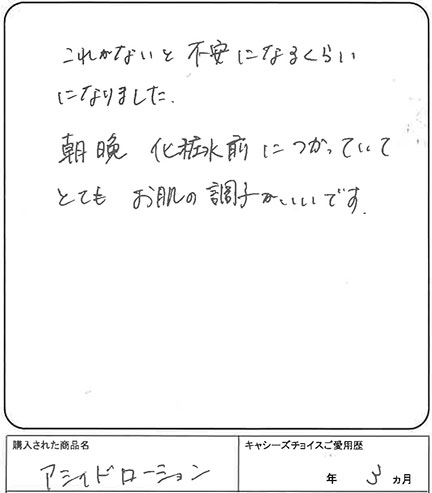 これがないと 不安になるくらい
になりました.
朝晩 化粧水前につかっていて
とても お肌の調子がいいです.
購入された商品名
キャシーズチョイスご愛用歴
アシィドローション
年 3 カ月